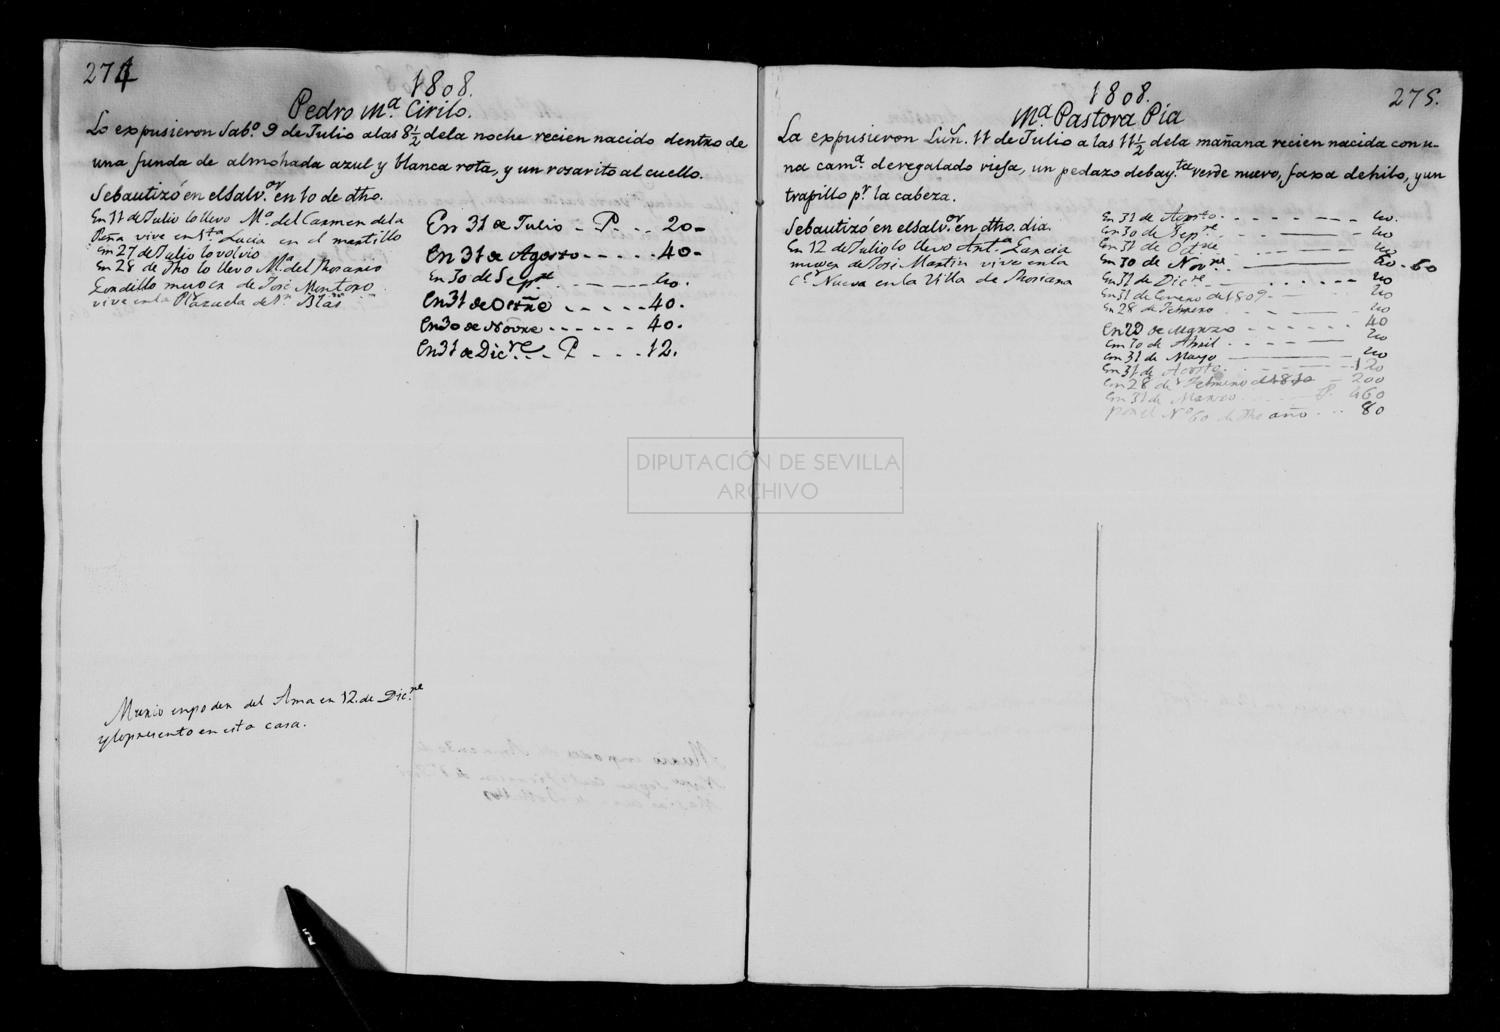 274
1808.
Pedro Mª. Cirilo.
Lo expusieron Sabº. 9 de Julio a las 8½ dela noche recien nacido dentro de
una funda de almohada azul y blanca rota, y un rosarito al cuello.
Sebautizó en elsalv.or en 10 de dho.
En 11 de Julio lo llevo Mª. del Carmen dela
Peña vive en Sta Lucia en el mantillo
Em 27 de Julio lo volvio
En 28 de dho lo llevo Mª. del Rosario
Gordillo muger de José Montoro
vive enla Plazuela de Sn. Blas
En 31 de Julio - P. - - 20-
En 31 de Agosto - - - - - 40-
En 30 de Sepre - - - 40.
En 31 de Octre - - - - - 40.
En 30 de Novre - - - - - - 40.
En 31 de Dicre - - P - - - - 12.
Murio enpoder del Ama en 12. de Dic.re
y lopresento en esta casa.
275.
1808.
Mª. Pastora Pía
La expusieron Lun. 11 de Julio a las 11½ dela mañana recien nacida con u-
na camª. deregalado vieja, un pedazo debay.ta verde nuevo, faxa dehilo, y un
trapillo pr. la cabeza.
Sebautizó en elsalv.or en dho. dia.
En 12 de Julio lo llevo Ant.a Garcia
muger de José Martin vive enla
Ce. Nueva en la Villa de
En 31 de Agosto - - - - - 40.
En 30 de Sepre - - - 40
En 31 de Octre - - - 40
En 30 de Novre - - - 60
En 31 de Dicre - - - - - 40
En 31 de Enero de 1809 - - - 40
En 28 de Febrero - - - 40
En de Marzo - - - - 40
Em 30 de Abril - - - - - 40
Em 31 de Mayo - - - 40
En 31 de Agosto - - - - - 120
Em 28 de Febrero de 1810 - 200
Em 31 de Marzo - - - P. 460
por el Nº 60 de dho año - - - 80
DIPUTACIÓN DE SEVILLA
ARCHIVO